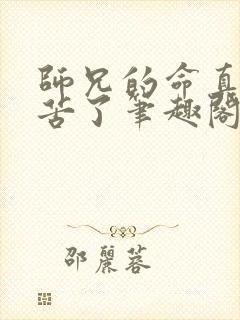 師兄的命真
苦了筆趣閣
邵麗蓉